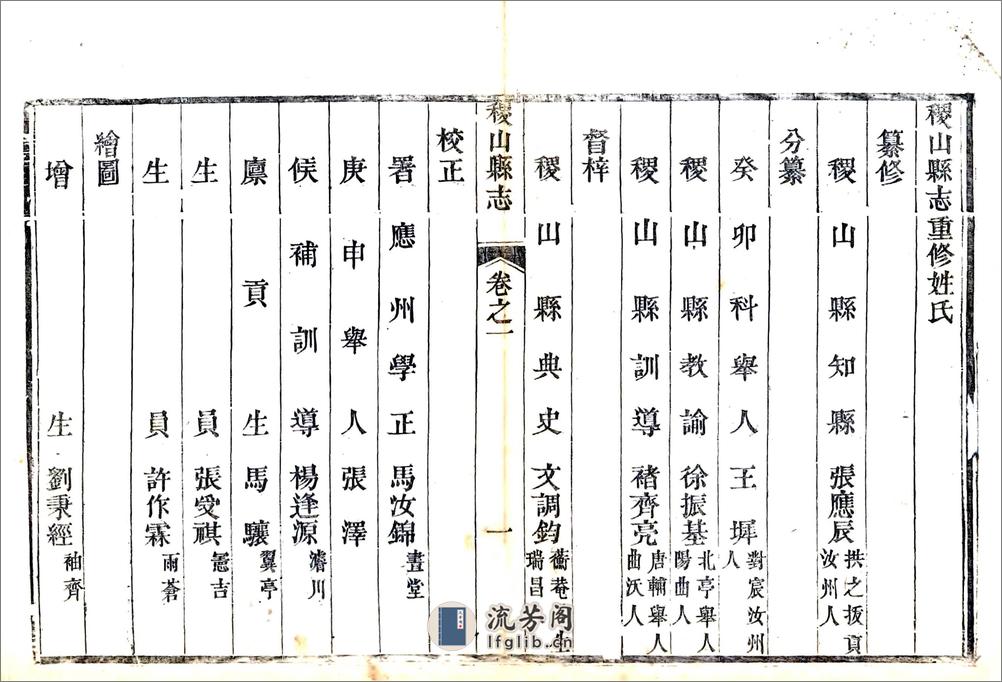 稷山縣志重修姓氏
纂修
稷山縣知縣張應辰 拱之拔貢汝州人
分纂
癸卯科舉人王墀 對宸汝州人
稷山縣教諭徐振基 北亭舉人陽曲人
稷山縣訓導褚齊亮 唐輔舉人曲沃人
督梓
稷山縣典史文調鈞 瑞昌
稷山縣志 卷之一 一
校正
署應州學正馬汝錦 晝堂
庚申舉人張澤
候補訓導楊逢源 濬川
廩貢生馬驤 翼亭
生員張受祺 吉
生員許作霖 雨蒼
繪圖
增生劉秉經 袖齊
流芳阁
lfglib.cn